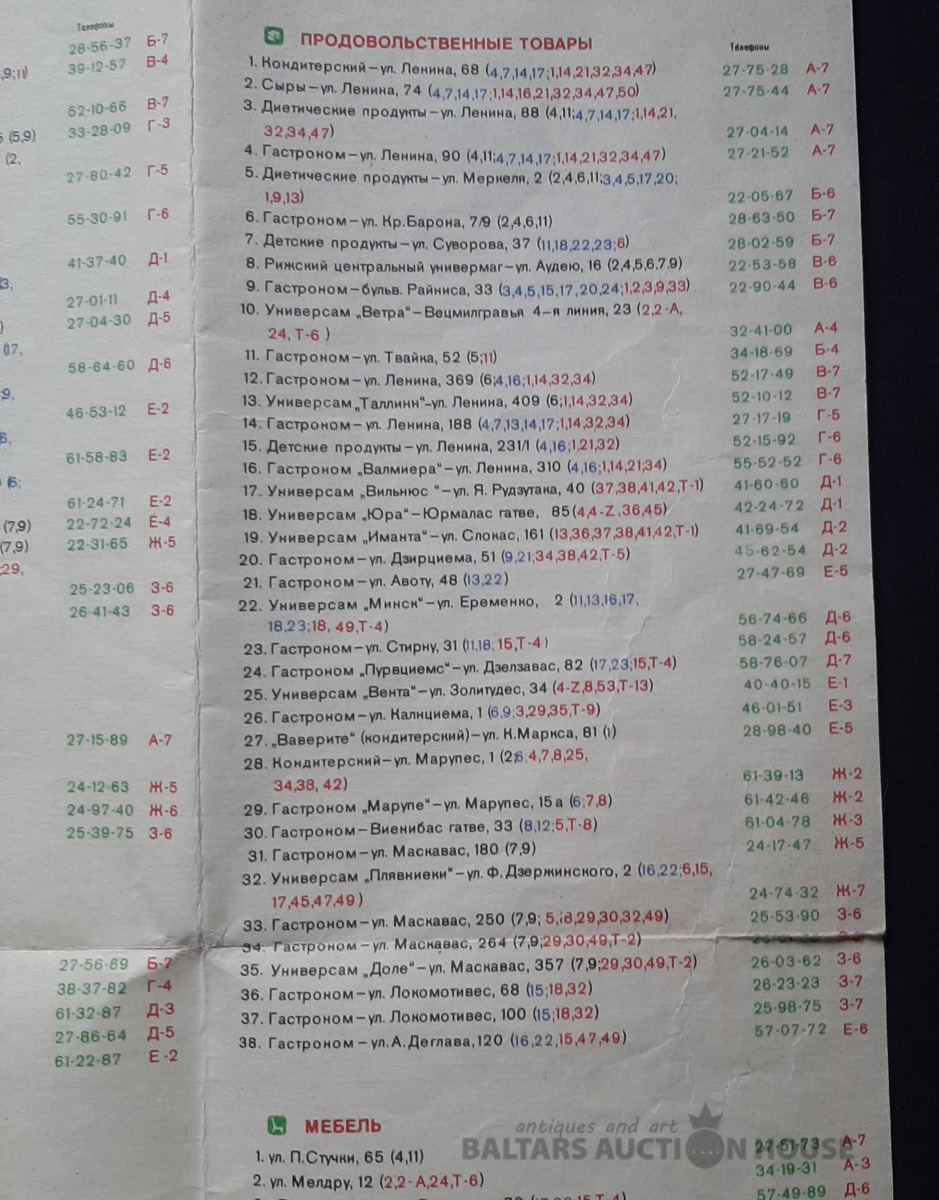 Телефоны
28-56-37 Б-7
39-12-57 В-4
52-10-66 В-7
33-28-09 Г-3
27-80-42 Г-5
55-30-91 Г-6
41-37-40 Д-1
27-01-11 Д-4
27-04-30 Д-5
58-64-60 Д-6
46-53-12 Е-2
61-58-83 Е-2
61-24-71 Е-2
(7,9) 22-72-24 Е-4
(7,9) 22-31-65 Ж-5
25-23-06 З-6
26-41-43 З-6
27-15-89 А-7
24-12-63 Ж-5
24-97-40 Ж-6
25-39-75 З-6
27-56-69 Б-7
38-37-82 Г-4
61-32-87 Д-3
27-86-64 Д-5
61-22-87 Е-2
ПРОДОВОЛЬСТВЕННЫЕ ТОВАРЫ
Телефоны
1. Кондитерский–ул. Ленина, 68 (4,7,14,17;1,14,21,32,34,47) 27-75-28 А-7
2. Сыры–ул. Ленина, 74 (4,7,14,17;1,14,16,21,32,34,47,50) 27-75-44 А-7
3. Диетические продукты–ул. Ленина, 88 (4,11;4,7,14,17;1,14,21,
32,34,47) 27-04-14 А-7
4. Гастроном–ул. Ленина, 90 (4,11;4,7,14,17;1,14,21,32,34,47) 27-21-52 А-7
5. Диетические продукты–ул. Меркеля, 2 (2,4,6,11;3,4,5,17,20;
1,9,13) 22-05-67 Б-6
6. Гастроном–ул. Кр.Барона, 7/9 (2,4,6,11) 28-63-50 Б-7
7. Детские продукты–ул. Суворова, 37 (11,18,22,23;6) 28-02-59 Б-7
8. Рижский центральный универмаг–ул. Аудею, 16 (2,4,5,6.7.9) 22-53-58 В-6
9. Гастроном–бульв. Райниса, 33 (3,4,5,15,17,20,24;1,2,3,9,33) 22-90-44 В-6
10. Универсам „Ветра“–Вецмилгравья 4–я линия, 23 (2,2-А,
24, Т-6 ) 32-41-00 А-4
11. Гастроном–ул. Твайка, 52 (5;11) 34-18-69 Б-4
12. Гастроном–ул. Ленина, 369 (6;4,16;1,14,32,34) 52-17-49 В-7
13. Универсам„Таллинн“–ул. Ленина, 409 (6;1,14,32,34) 52-10-12 В-7
14. Гастроном–ул. Ленина, 188 (4,7,13,14,17;1,14,32,34) 27-17-19 Г-5
15. Детские продукты–ул. Ленина, 231/1 (4,16;1,21,32) 52-15-92 Г-6
16. Гастроном „Валмиера“–ул. Ленина, 310 (4,16;1,14,21;34) 55-52-52 Г-6
17. Универсам „Вильнюс “–ул. Я. Рудзутака, 40 (37,38,41,42,Т-1) 41-60-60 Д-1
18. Универсам „Юра“–Юрмалас гатве, 85 (4,4-Z ,36,45) 42-24-72 Д-1
19. Универсам „Иманта“–ул. Слокас, 161 (13,36,37,38,41,42,Т-1) 41-69-54 Д-2
20. Гастроном–ул. Дзирциема, 51 (9,21;34,38,42,Т-5) 45-62-54 Д-2
21. Гастроном–ул. Авоту, 48 (13,22) 27-47-69 Е-5
22. Универсам „Минск“–ул. Еременко, 2 (11,13,16,17,
18,23;18, 49,Т-4) 56-74-66 Д-6
23. Гастроном–ул. Стирну, 31 (11,18; 15,Т-4 ) 58-24-57 Д-6
24. Гастроном „Пурвциемс“–ул. Дзелзавас, 82 (17,23;15,Т-4) 58-76-07 Д-7
25. Универсам „Вента“–ул. Золитудес, 34 (4-Z,8,53,Т-13) 40-40-15 Е-1
26. Гастроном–ул. Калнциема, 1 (6,9;3,29,35,Т-9) 46-01-51 Е-3
27. „Ваверите“ (кондитерский)–ул. К.Маркса, 81 (1) 28-98-40 Е-5
28. Кондитерский–ул. Марупес, 1 (2;6;4,7,8,25,
34,38, 42) 61-39-13 Ж-2
29. Гастроном „Марупе“–ул. Марупес, 15а (6;7,8) 61-42-46 Ж-2
30. Гастроном–Виенибас гатве, 33 (8,12;5,Т-8) 61-04-78 Ж-3
31. Гастроном–ул. Маскавас, 180 (7,9) 24-17-47 Ж-5
32. Универсам „Плявниеки“–ул. Ф. Дзержинского, 2 (16,22;6,15,
17,45,47,49 ) 24-74-32 Ж-7
33. Гастроном–ул. Маскавас, 250 (7,9; 5,18,29,30,32,49) 25-53-90 З-6
34. Гастроном–ул. Маскавас, 264 (7,9;29,30,49,Т-2)
35. Универсам „Доле“–ул. Маскавас, 357 (7,9;29,30,49,Т-2) 26-03-62 З-6
36. Гастроном–ул. Локомотивес, 68 (15;18,32) 26-23-23 З-7
37. Гастроном–ул. Локомотивес, 100 (15;18,32) 25-98-75 З-7
38. Гастроном–ул.А.Деглава,120 (16,22,15,47,49) 57-07-72 Е-6
МЕБЕЛЬ
1. ул. П.Стучки, 65 (4,11) 27-51-73 А-7
2. ул. Мелдру, 12 (2,2-А,24,Т-6) 34-19-31 А-3
57-49-89 Д-6
antiques and art
BALTARS AUCTION HOUSE